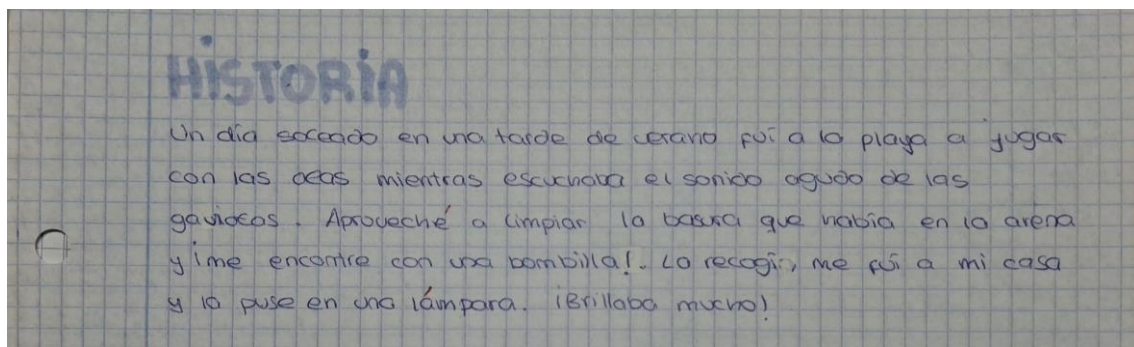 HISTORIA
Un día soleado en una tarde de verano fui a la playa a jugar
con las olas mientras escuchava el sonido agudo de las
gaviotas. Aproveché a limpiar la basura que había en la arena
y ¡me encontre con una bombilla!. La recogí, me fui a mi casa
y la puse en una lámpara. ¡Brillaba mucho!